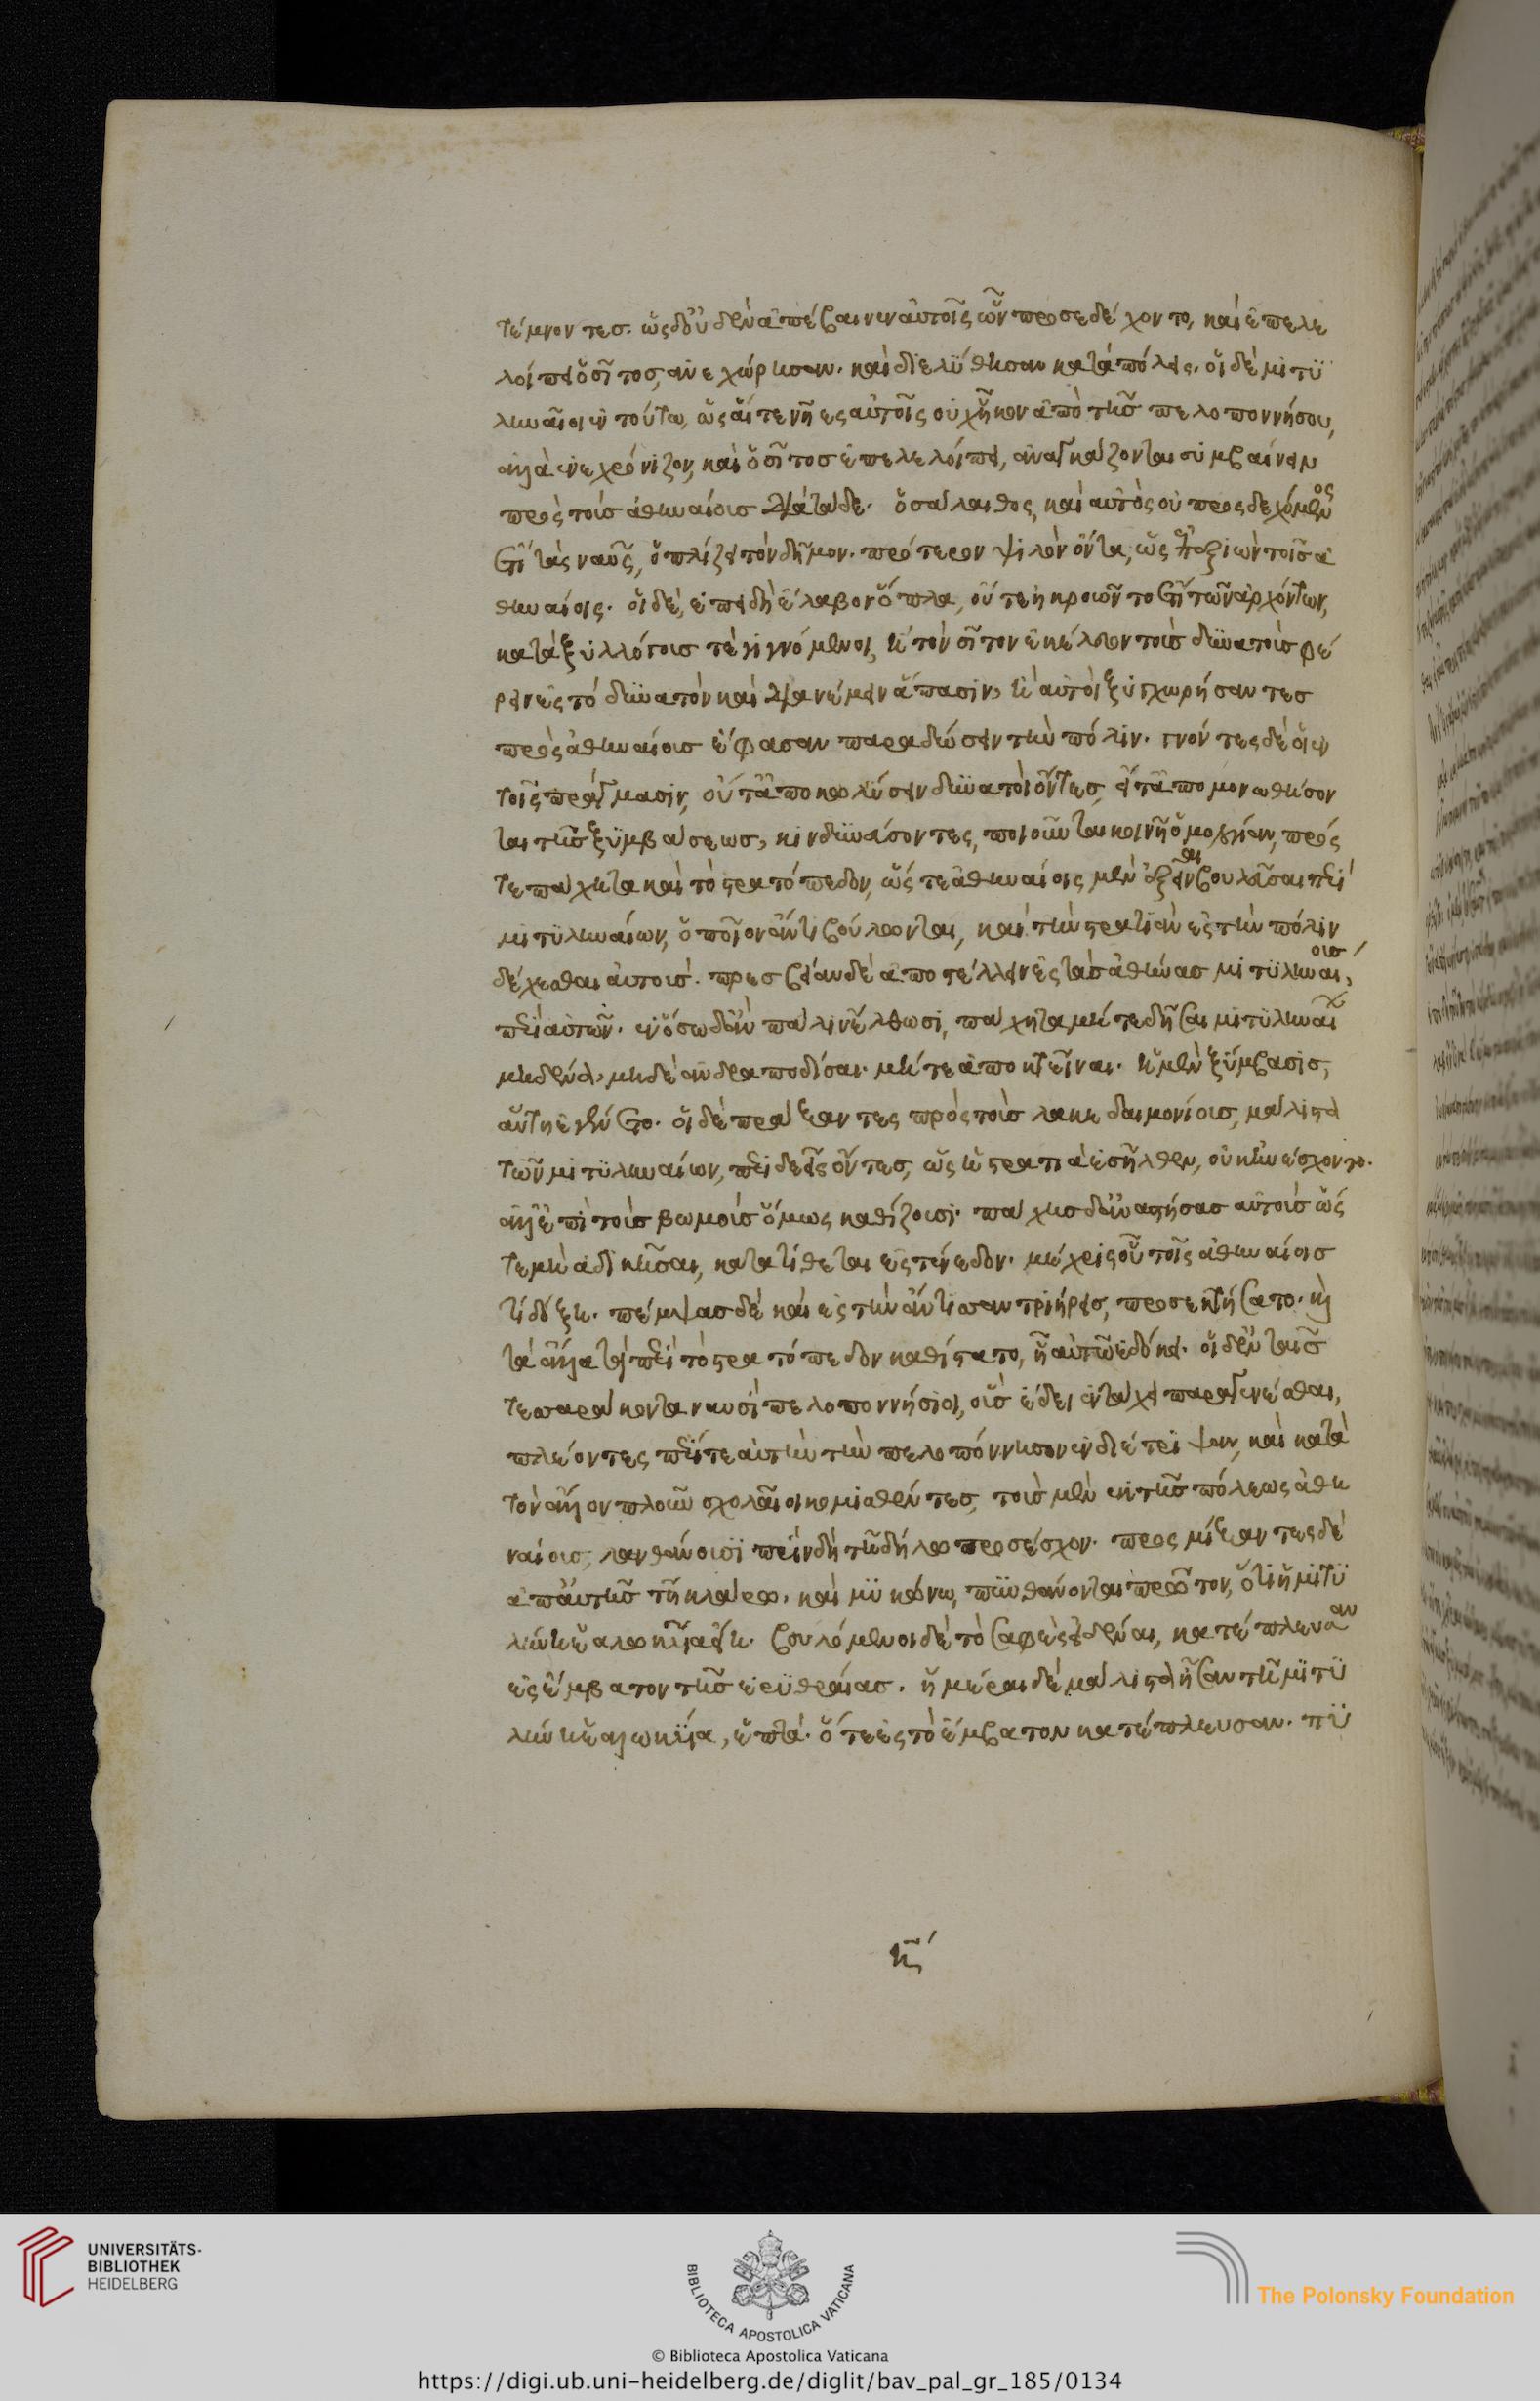 τέμνοντεσ. ὡς δ' οὐδὲν ἀπέβαινεν αὐτοῖς ὧν προσεδέχοντο, καὶ ἐπελε
λοίπει ὁ σῖτος, ἀνεχώρησαν. καὶ διελύθησαν κατὰ πόλεις. οἱ δὲ μιτϋ
ληναῖοι ἐν τούτω, ὡς αἵ τε νῆες αὐτοῖς οὐχ ἧκον ἀπὸ τῆσ πελοποννήσου,
ἀλλὰ ἐνεχρόνιζον, καὶ ὁ σῖτοσ ἐπελελοίπει, ἀναγκάζονται ξυμβαίνειν
πρὸς τοὺς ἀθηναίουσ διὰ τάδε. ὁ σάλαιθος, καὶ αὐτὸς οὐ προσδεχόμενος
ἔτι τὰς ναῦς, ὁπλίζει τὸν δῆμον. πρότερον ψιλὸν ὄντα, ὡς ἐπεξιὼν τοῖσ ἀ
θηναίοις. οἱ δὲ, ἐπειδὴ ἔλαβον ὅπλα, οὔτε ἠκροῶντο ἔτι τῶν ἀρχόντων,
κατὰ ξυλλόγουσ τὲ γιγνόμενοι, ἢ τὸν σῖτον ἐκέλευον τοὺσ δυνατοὺσ φέ
ρειν εἰς τὸ δυνατὸν καὶ διανέμειν ἅπασιν, ἢ αὐτοὶ ξυγχωρήσαντεσ
πρὸς ἀθηναίουσ ἔφασαν παραδώσειν τὴν πόλιν. γνόντες δὲ οἱ ἐν
τοῖς πράγμασιν, οὔτ' ἀποκωλύσειν δυνατοὶ ὄντεσ, εἴτ' ἀπομονωθήσον
ται τῆσ ξυμβάσεωσ, κινδυνεύσοντες, ποιοῦνται κοινῆ ὁμολογίαν, πρός
τε πάχητα καὶ τὸ στρατόπεδον, ὥστε ἀθηναίοις μὲν ἐξεῖναι βουλεῦσαι περὶ
μιτυληναίων, ὁποῖον ἄν τι βούλωνται, καὶ τὴν στρατιὰν ἐς τὴν πόλιν
δέχεσθαι αὐτούσ. πρεσβείαν δὲ ἀποστέλλειν ἐς τὰσ ἀθήνασ μιτυληναίουσ
περὶ αὐτῶν. ἐν ὅσω δ' ἂν πάλιν ἔλθωσι, πάχητα μήτε δῆσαι μιτυληναίων
μηδένα, μηδὲ ἀνδραποδίσαι. μήτε ἀποκτεῖναι. ἡ μὲν ξύμβασις,
αὕτη ἐγένετο. οἱ δὲ πράξαντες πρὸς τοὺσ λακεδαιμονίουσ, μάλιστα
τῶν μιτυληναίων, περιδεεῖς ὄντεσ, ὡς ἡ στρατιὰ ἐσῆλθεν, οὐκ ἠνέσχοντο.
ἀλλ' ἐπὶ τοὺσ βωμοὺσ ὅμως καθίζουσι. πάχησ δ' ἀναστήσασ αὐτοὺσ ὥς
τε μὴ ἀδικῆσαι, κατατίθεται ἐς τένεδον. μέχρις οὗ τοῖς ἀθηναίοισ
τὶ δόξη. πέμψασ δὲ καὶ ἐς τὴν ἄντισσαν τριήρεισ, προσεκτήσατο. καὶ
τὰ ἄλλα τὰ περὶ τὸ στρατόπεδον καθίστατο, ἧ αὐτῶ ἐδόκει. οἱ δ' ἐν ταῖσ
τεσσαράκοντα ναυσὶ πελοποννήσιοι, οὓσ ἔδει ἐν τάχει παραγενέσθαι,
πλέοντες περί τε αὐτὴν τὴν πελοπόννησον ἐνδιέτριψαν, καὶ κατὰ
τὸν ἄλλον πλοῦν σχολαῖοι κομισθέντεσ, τοὺσ μὲν ἐκ τῆσ πόλεως ἀθη
ναίουσ, λανθάνουσϊ πρὶν δὴ τῆ δήλω προσέσχον. προσμίξαντες δὲ
ἀπ' αὐτῆσ τῆ ικάρω. καὶ μϋκόνω, πυνθάνονται πρῶτον, ὅτι ἡ μιτϋ
λήνη ἑάλωκε. βουλόμενοι δὲ τὸ σαφὲς εἰδέναι, κατέπλευσαν
ἐς ἔμβατον τῆσ ἐρυθραίασ. ἡμέραι δὲ μάλιστα ἦσαν τῆ μιτϋ
λήνη ἑαλωκυία, ἑπτά. ὅτε ἐς τὸ ἔμβατον κατέπλευσαν. πϋ
UNIVERSITÄTS-
BIBLIOTHEK
HEIDELBERG
BIBLIOTECA APOSTOLICA VATICANA
The Polonsky Foundation
© Biblioteca Apostolica Vaticana
https://digi.ub.uni-heidelberg.de/diglit/bav_pal_gr_185/0134